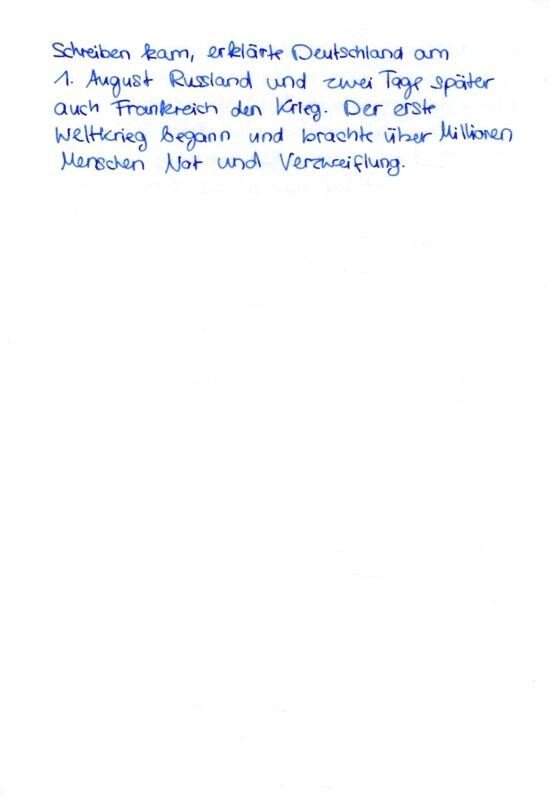 Schreiben kam, erklärte Deutschland am
1. August Russland und zwei Tage später
auch Frankreich den Krieg. Der erste
Weltkrieg begann und brachte über Millionen
Menschen Not und Verzweiflung.